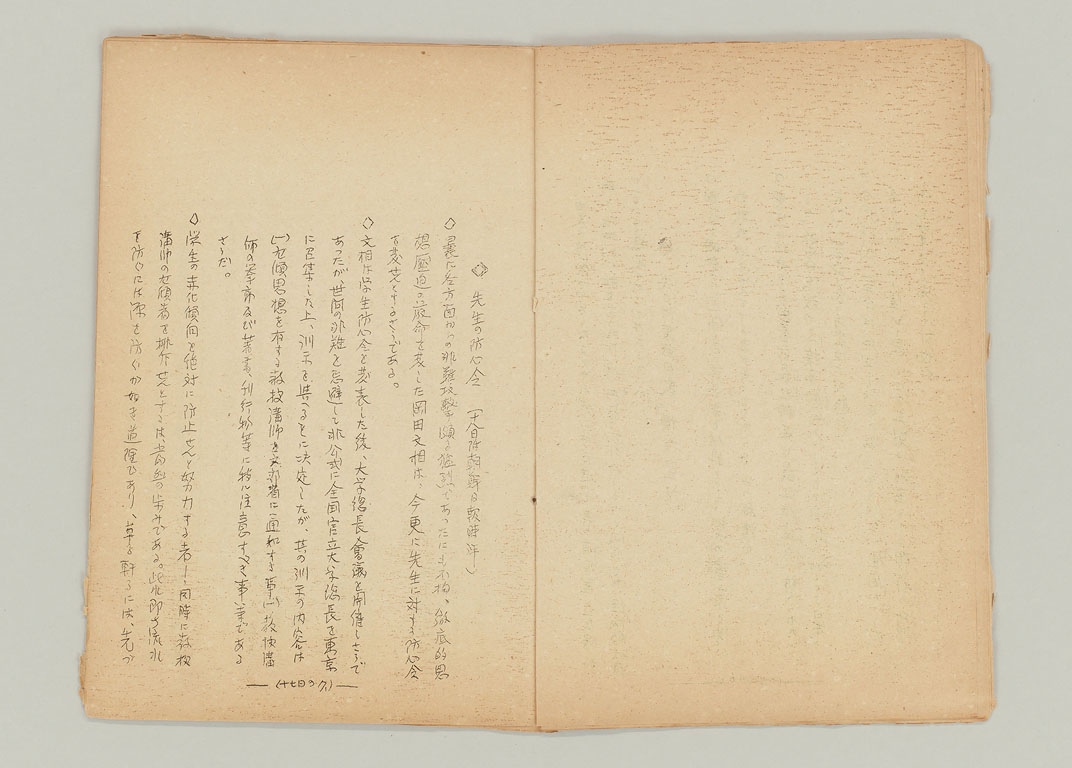 先生の防心令 (十八日附朝鮮日報時評)
◇ 曩に各方面からの非難攻撃頗る猛烈であったにも不拘、徹底的思
想壓迫の厳命を発した岡田文相は、今更に先生に対する防心令
を発せんとするさうである。
◇ 文相は学生防心令を発表した後、大学総長会議を開催しさうで
あったが世間の非難を忌避して非公式に全国官立大学総長を東京
に召集した上、訓示を与へることに決定したが、其の訓示の内容は
(一)左傾思想を有する教授講師を文部省に通知する事(二)教授講
師の著書及び刊行物等に特に注意すべき事、である
さうだ。
◇ 学生の赤化傾向を絶対に防止せんと努力する者、同時に教授
講師の左傾者を排斥せんとするは当然の歩みである。此れ即ち流れ
を防ぐには源を防ぐが如き道理であり、草を刈るには、先づ